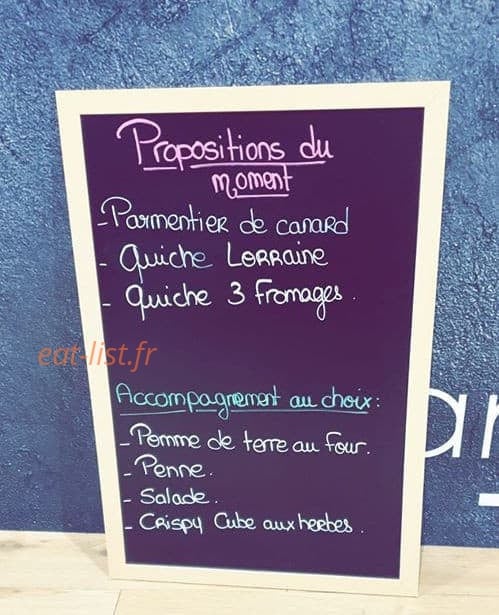 Propositions du
moment
- Parmentier de canard
- Quiche Lorraine
- Quiche 3 Fromages.
eat-list.fr
Accompagnement au choix:
- Pomme de terre au four.
- Penne.
- Salade.
- Crispy Cube aux herbes.